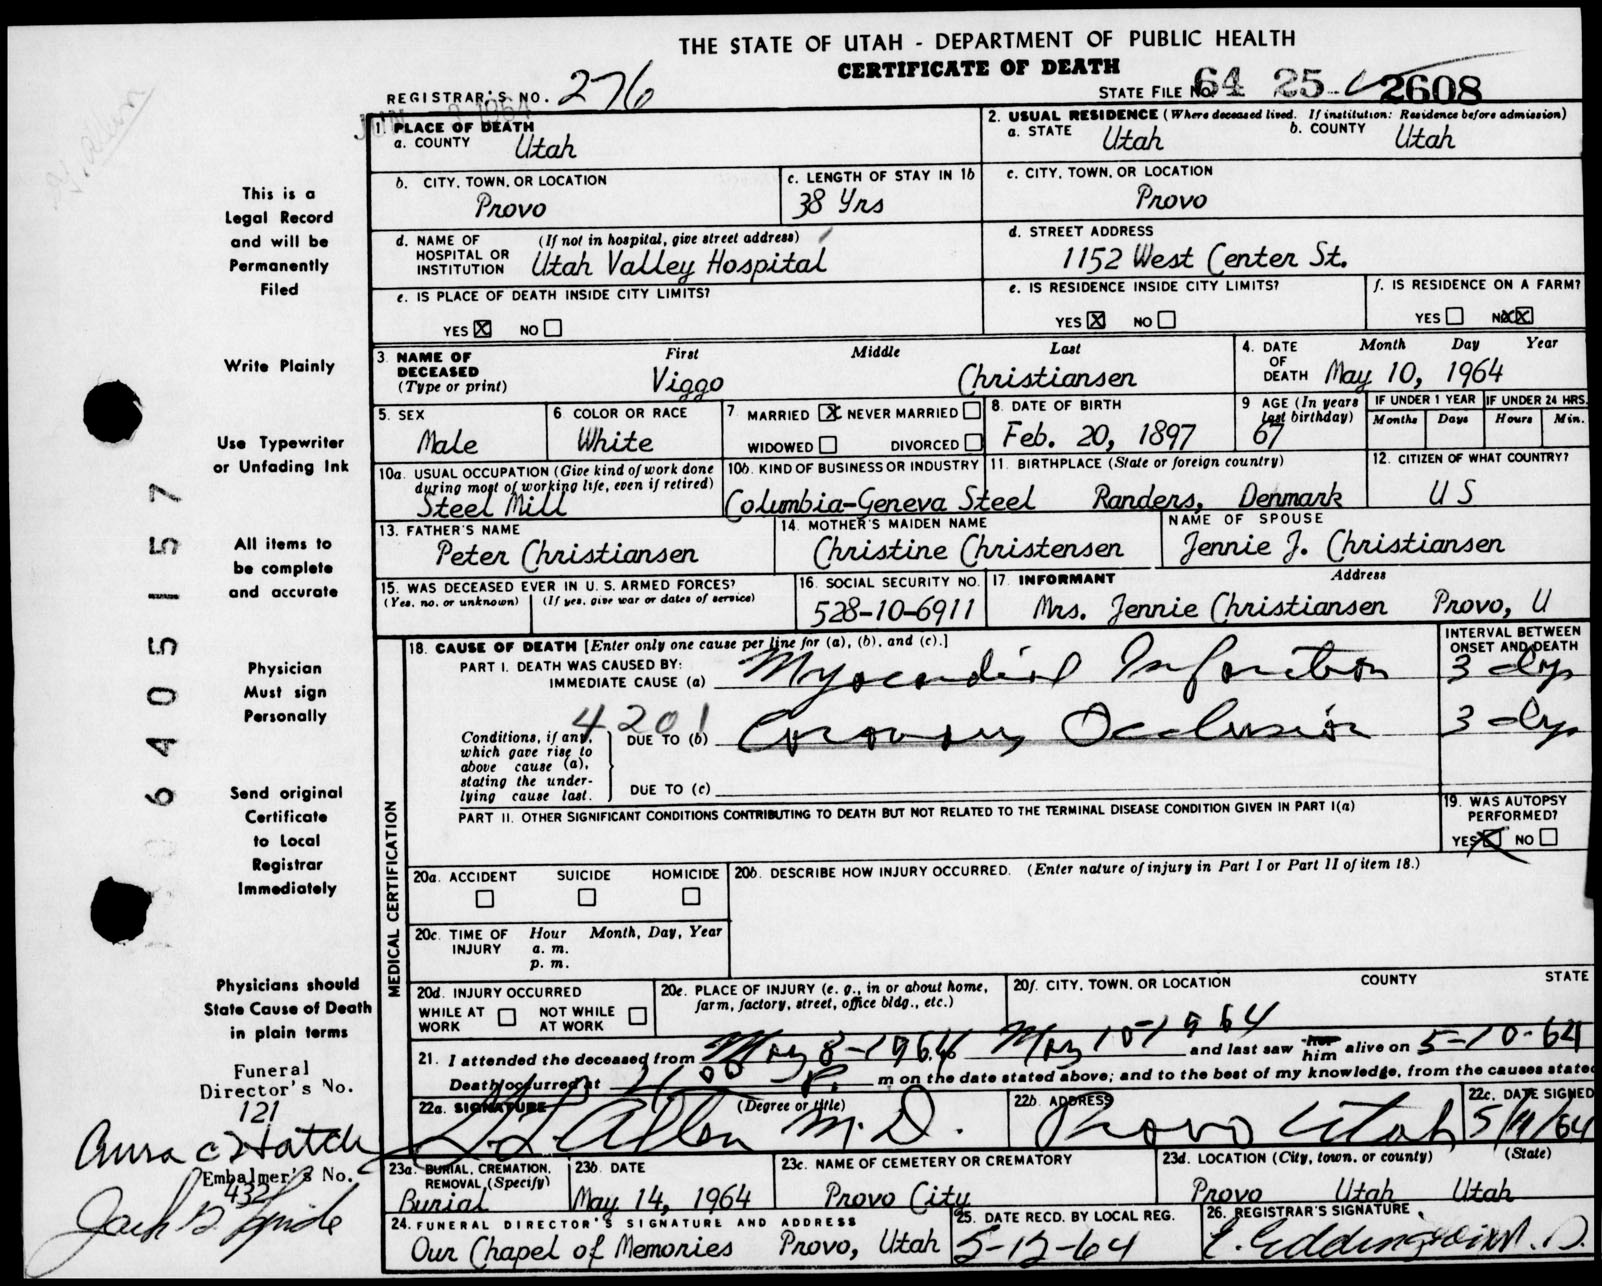 THE STATE OF UTAH - DEPARTMENT OF PUBLIC HEALTH
CERTIFICATE OF DEATH
REGISTRAR'S NO. 276
STATE FILE NO. 64 25 2608
1. PLACE OF DEATH
a. COUNTY Utah
2. USUAL RESIDENCE (Where deceased lived. If institution: Residence before admission)
a. STATE Utah b. COUNTY Utah
b. CITY, TOWN, OR LOCATION Provo
c. LENGTH OF STAY IN 1b 38 Yrs
c. CITY, TOWN, OR LOCATION Provo
d. NAME OF HOSPITAL OR INSTITUTION (If not in hospital, give street address) Utah Valley Hospital
d. STREET ADDRESS 1152 West Center St.
e. IS PLACE OF DEATH INSIDE CITY LIMITS?
YES X NO
e. IS RESIDENCE INSIDE CITY LIMITS?
YES X NO
f. IS RESIDENCE ON A FARM?
YES NO X
3. NAME OF DECEASED (Type or print)
First Middle Last
Viggo Christiansen
4. DATE OF DEATH Month Day Year
May 10, 1964
5. SEX Male
6. COLOR OR RACE White
7. MARRIED X NEVER MARRIED
WIDOWED DIVORCED
8. DATE OF BIRTH Feb. 20, 1897
9. AGE (In years last birthday) 67
IF UNDER 1 YEAR Months Days
IF UNDER 24 HRS. Hours Min.
10a. USUAL OCCUPATION (Give kind of work done during most of working life, even if retired) Steel Mill
10b. KIND OF BUSINESS OR INDUSTRY Columbia-Geneva Steel
11. BIRTHPLACE (State or foreign country) Randers, Denmark
12. CITIZEN OF WHAT COUNTRY? U S
13. FATHER'S NAME Peter Christiansen
14. MOTHER'S MAIDEN NAME Christine Christensen
NAME OF SPOUSE Jennie J. Christiansen
15. WAS DECEASED EVER IN U. S. ARMED FORCES?
(Yes, no, or unknown) (If yes, give war or dates of service)
16. SOCIAL SECURITY NO. 528-10-6911
17. INFORMANT Address
Mrs. Jennie Christiansen Provo, U
MEDICAL CERTIFICATION
18. CAUSE OF DEATH [Enter only one cause per line for (a), (b), and (c).]
INTERVAL BETWEEN ONSET AND DEATH
PART I. DEATH WAS CAUSED BY:
IMMEDIATE CAUSE (a) Myocardial Infarction 3 dys
4201
Conditions, if any, which gave rise to above cause (a), stating the underlying cause last.
DUE TO (b) Coronary Occlusion 3 dys
DUE TO (c)
PART II. OTHER SIGNIFICANT CONDITIONS CONTRIBUTING TO DEATH BUT NOT RELATED TO THE TERMINAL DISEASE CONDITION GIVEN IN PART I(a)
19. WAS AUTOPSY PERFORMED?
YES X NO
20a. ACCIDENT SUICIDE HOMICIDE
20b. DESCRIBE HOW INJURY OCCURRED. (Enter nature of injury in Part I or Part II of item 18.)
20c. TIME OF INJURY Hour Month, Day, Year
a. m.
p. m.
20d. INJURY OCCURRED
WHILE AT WORK NOT WHILE AT WORK
20e. PLACE OF INJURY (e. g., in or about home, farm, factory, street, office bldg., etc.)
20f. CITY, TOWN, OR LOCATION COUNTY STATE
21. I attended the deceased from May 8-1964 May 10-1964 and last saw her him alive on 5-10-64
Death occurred at P. m on the date stated above; and to the best of my knowledge, from the causes stated
22a. SIGNATURE (Degree or title) M.D.
22b. ADDRESS Provo Utah
22c. DATE SIGNED 5/11/64
23a. BURIAL, CREMATION, REMOVAL (Specify) Burial
23b. DATE May 14, 1964
23c. NAME OF CEMETERY OR CREMATORY Provo City
23d. LOCATION (City, town, or county) (State)
Provo Utah Utah
24. FUNERAL DIRECTOR'S SIGNATURE AND ADDRESS
Our Chapel of Memories Provo, Utah
25. DATE RECD. BY LOCAL REG. 5-12-64
26. REGISTRAR'S SIGNATURE
This is a
Legal Record
and will be
Permanently
Filed
Write Plainly
Use Typewriter
or Unfading Ink
All items to
be complete
and accurate
Physician
Must sign
Personally
Send original
Certificate
to Local
Registrar
Immediately
Physicians should
State Cause of Death
in plain terms
Funeral
Director's No.
121
Embalmer's No.
432
6405157